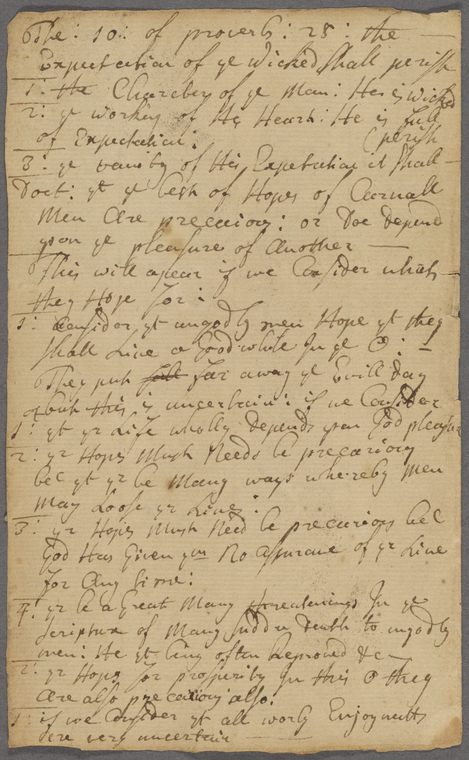 The: 10: of proverb: 28: the
Expectation of ye wicked shall perish
1: the Charecter of ye Man: He is wicked
2: ye working of His Heart: He is full
of Expectation: (perish
3: ye vanity of His Expetation it shall
Doct: yt ye best of Hopes of Carnall
Men Are precarious: or Doe Depend
upon ye pleasure of Another
This will apear if we Consider what
they Hope for:
1: Consider yt ungodly men Hope yt they
shall Live a Good while In ye
They put far away ye Evill Day
but this is uncertain: if we Consider
1: yt yr Life wholly Depends upon God pleasure
2: yr Hopes Must Needs be precarious
bec yt yr be Many ways whereby Men
May Loose yr Lives:
3: yr Hopes Must Need be precarious bec
God Has Given ym No Assurance of yr Live
for Any time:
4: yr be a Great Many threatnings In ye
Scripture of Many sudden Death to ungodly
men: He yt being often Reproved &c
2: yr Hops for prosperity In this they
Are also precarious also:
1: if we Consider yt all worly Enjoyments
Are very uncertain